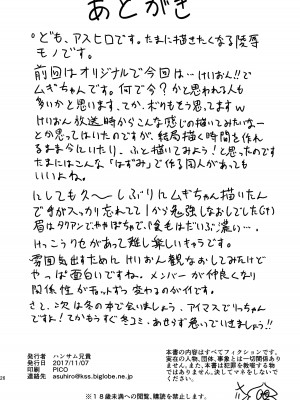 あとがき
ども、アスヒロです。たまに描きたくなる陵辱
モノです。
前回はオリジナルで今回は…けいおん!!で
ムギちゃんです。何で今?かと思われる人も
多いかと思います、てか、ボクもそう思ってますw
けいおん放送時からこんな感じの描いてみたいなー
とか思ってはいたのですが、結局描く時間を作れ
るまま今にいたり、ふと描いてみよう!と思ったのです
たまにはこんな「はずみ」で作る同人があっても
いいよね。
にしても久〜しぶりにムギちゃん描いたん
ですがスッカリ忘れてて1から勉強しなおしでした
眉はタクアンで
けっこうクセがあって難し楽しいキャラです。
雰囲気出すためにけいおん観なおしてみたけど
やっぱ面白いですね。メンバーが仲良くなり
関係性がチョットずつ変わるのがイイです。
さて、次は冬の本で会いましょう、アイマスでりっちゃん
ですよ!てかもうすぐ冬コミ、あせらず急いでいきましょう!!
発行者 ハンサム兄貴
発行日 2017/11/07
印刷 PICO
連絡先 asuhiro@kss.biglobe.ne.jp
本書の内容はすべてフィクションです。
実在の人物、団体、事象とは一切関係あり
ません。また、本書は犯罪を教唆する物
ではありません、決してマネをしないで
ください。
※18歳未満への閲覧、購読を禁止します。
28